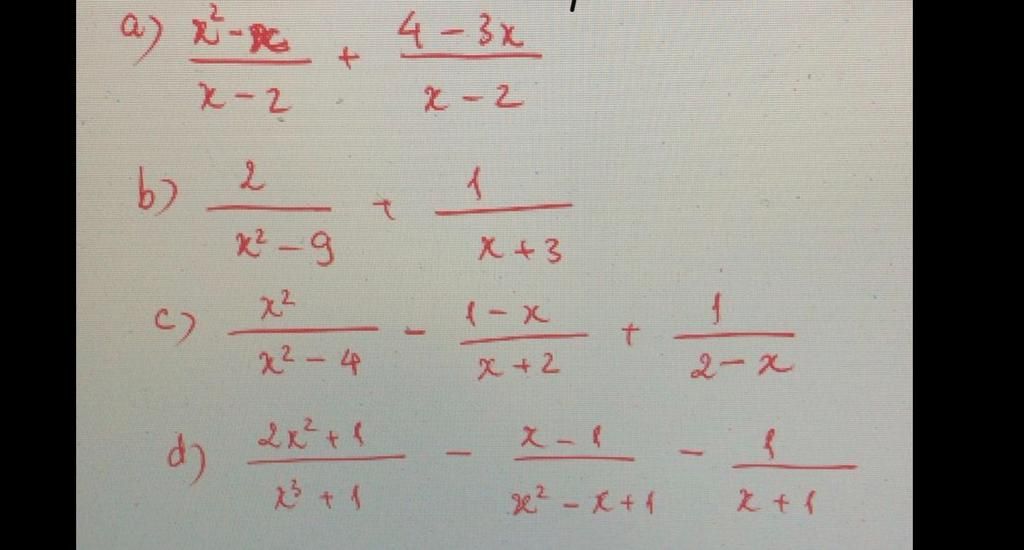 a) (x² - x)/(x - 2) + (4 - 3x)/(x - 2)
b) 2/(x² - 9) + 1/(x + 3)
c) x²/(x² - 4) - (1 - x)/(x + 2) + 1/(2 - x)
d) (2x² + 1)/(x³ + 1) - (x - 1)/(x² - x + 1) - 1/(x + 1)